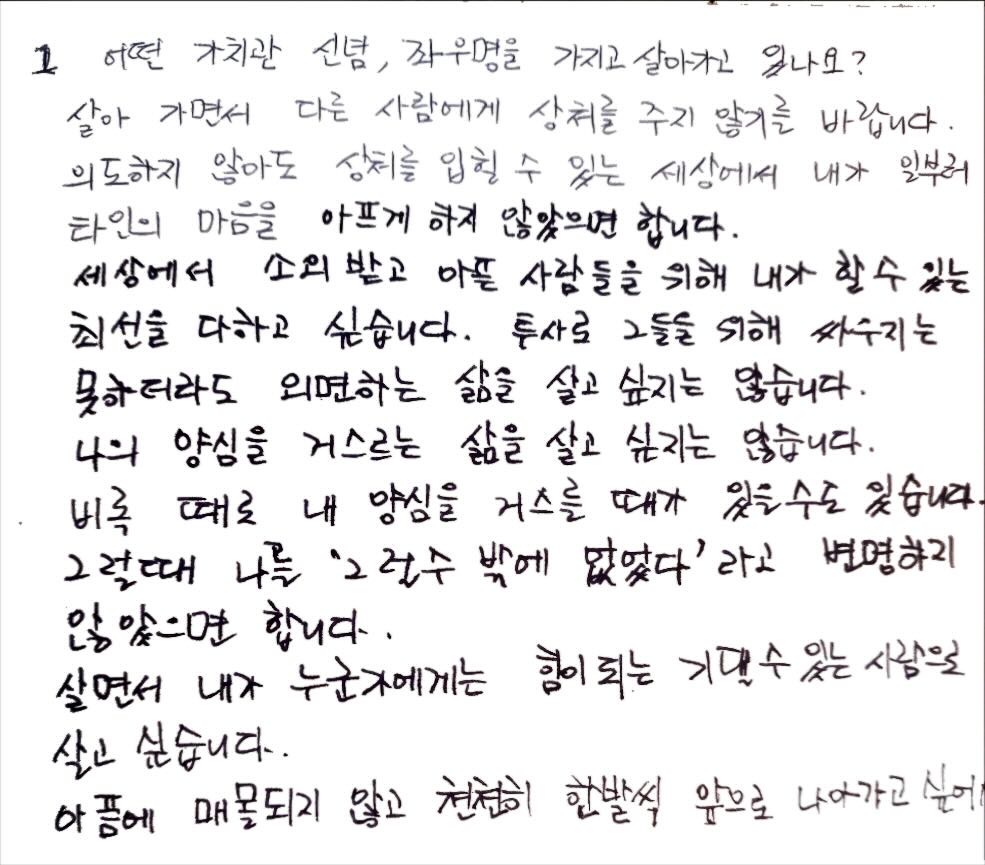 1 어떤 가치관 신념, 좌우명을 가지고 살아가고 있나요?
살아 가면서 다른 사람에게 상처를 주지 않기를 바랍니다.
의도하지 않아도 상처를 입힐 수 있는 세상에서 내가 일부러
타인의 마음을 아프게 하지 않았으면 합니다.
세상에서 소외 받고 아픈 사람들을 위해 내가 할 수 있는
최선을 다하고 싶습니다. 투사로 그들을 위해 싸우지는
못하더라도 외면하는 삶을 살고 싶지는 않습니다.
나의 양심을 거스르는 삶을 살고 싶지는 않습니다.
비록 때로 내 양심을 거스를 때가 있을 수도 있습니다.
그럴때 나를 '그럴수 밖에 없었다' 라고 변명하지
않았으면 합니다.
살면서 내가 누군가에게는 힘이 되는 기댈 수 있는 사람으로
살고 싶습니다.
아픔에 매몰되지 않고 천천히 한발씩 앞으로 나아가고 싶어